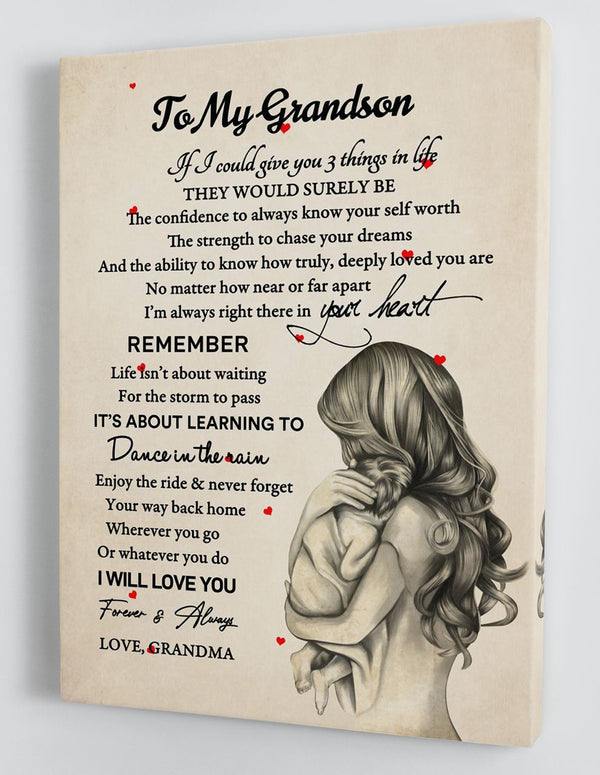 To My Grandson
If I could give you 3 things in life
THEY WOULD SURELY BE
The confidence to always know your self worth
The strength to chase your dreams
And the ability to know how truly, deeply loved you are
No matter how near or far apart
I'm always right there in your heart
REMEMBER
Life isn't about waiting
For the storm to pass
IT'S ABOUT LEARNING TO
Dance in the rain
Enjoy the ride & never forget
Your way back home
Wherever you go
Or whatever you do
I WILL LOVE YOU
Forever & Always
LOVE, GRANDMA